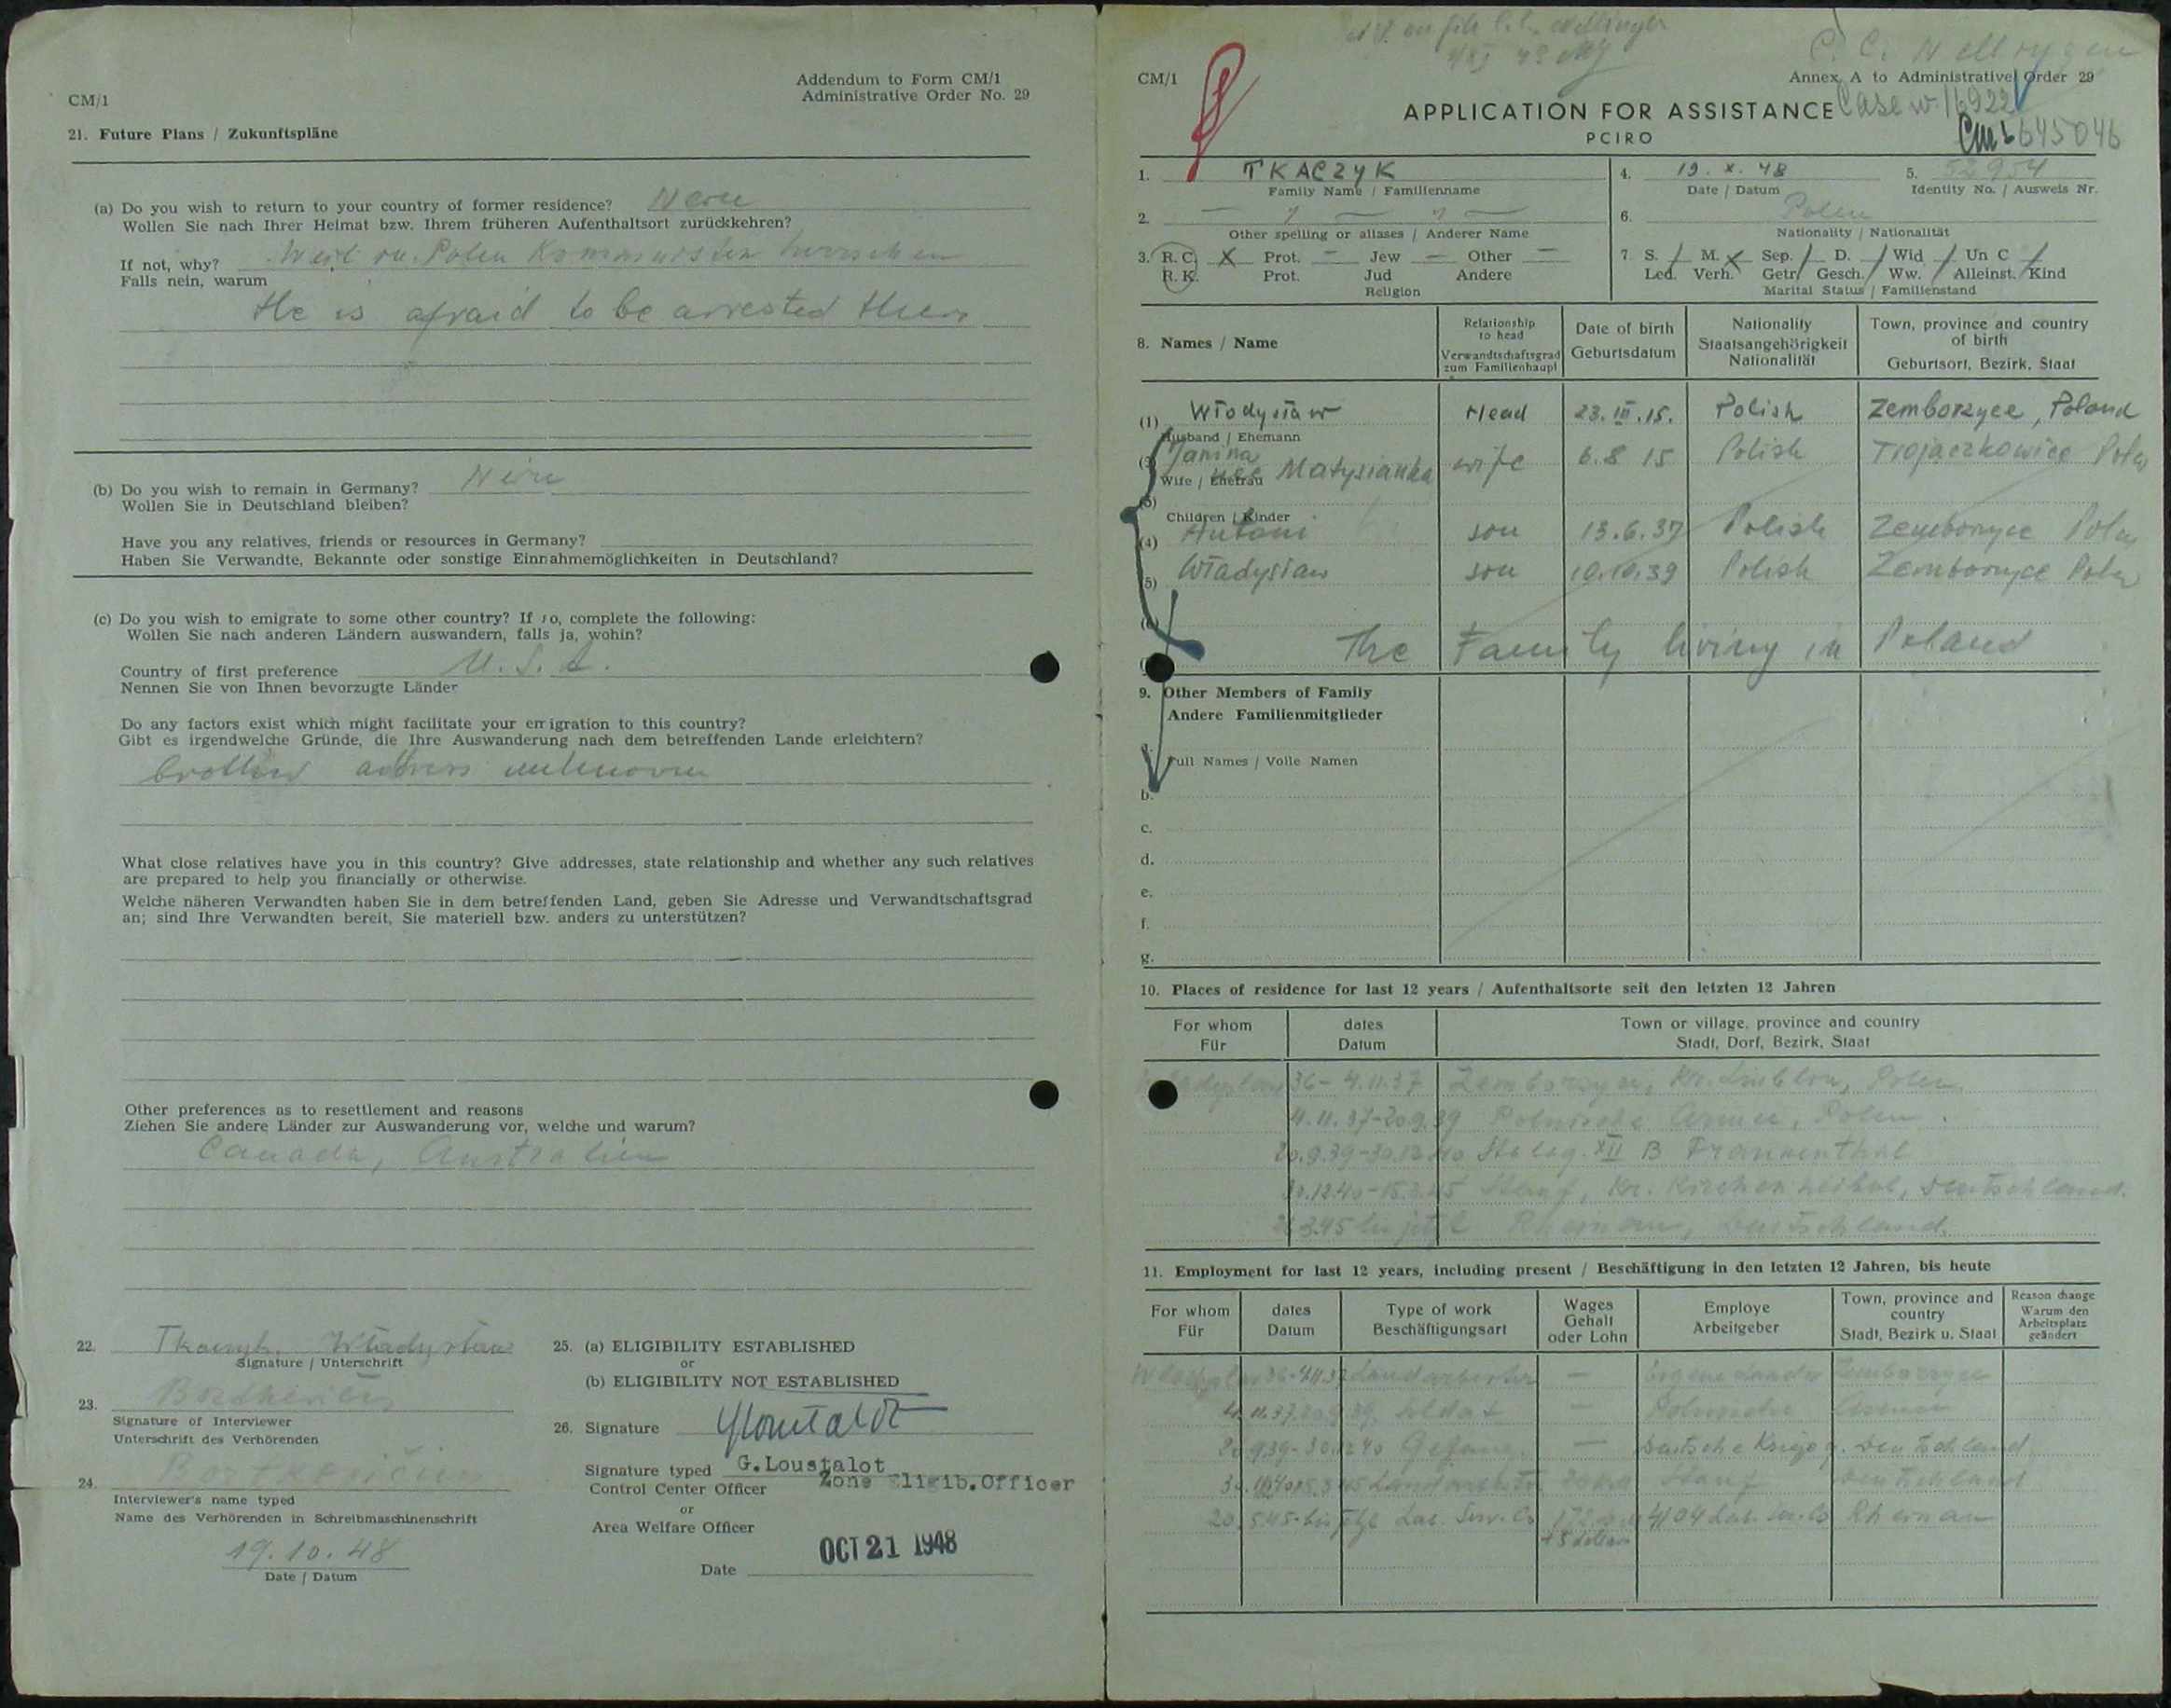 CM/1
Addendum to Form CM/1
Administrative Order No. 29
21. Future Plans / Zukunftspläne
(a) Do you wish to return to your country of former residence? Nein
Wollen Sie nach Ihrer Heimat bzw. Ihrem früheren Aufenthaltsort zurückkehren?
If not, why? Weil in Polen Kommunisten herrschen
Falls nein, warum
He is afraid to be arrested there
(b) Do you wish to remain in Germany? Nein
Wollen Sie in Deutschland bleiben?
Have you any relatives, friends or resources in Germany?
Haben Sie Verwandte, Bekannte oder sonstige Einnahmemöglichkeiten in Deutschland?
(c) Do you wish to emigrate to some other country? If so, complete the following:
Wollen Sie nach anderen Ländern auswandern, falls ja, wohin?
Country of first preference U.S.A.
Nennen Sie von Ihnen bevorzugte Länder
Do any factors exist which might facilitate your emigration to this country?
Gibt es irgendwelche Gründe, die Ihre Auswanderung nach dem betreffenden Lande erleichtern?
brother address unknown
What close relatives have you in this country? Give addresses, state relationship and whether any such relatives
are prepared to help you financially or otherwise.
Welche näheren Verwandten haben Sie in dem betreffenden Land, geben Sie Adresse und Verwandtschaftsgrad
an; sind Ihre Verwandten bereit, Sie materiell bzw. anders zu unterstützen?
Other preferences as to resettlement and reasons
Ziehen Sie andere Länder zur Auswanderung vor, welche und warum?
Canada, Australien
22. Tkaczyk Władysław
Signature / Unterschrift
23.
Signature of Interviewer
Unterschrift des Verhörenden
24.
Interviewer's name typed
Name des Verhörenden in Schreibmaschinenschrift
19.10.48
Date / Datum
25. (a) ELIGIBILITY ESTABLISHED
or
(b) ELIGIBILITY NOT ESTABLISHED
26. Signature
Signature typed G.Loustalot
Control Center Officer Zone Eligib.Officer
or
Area Welfare Officer
Date OCT 21 1948
CM/1
Annex A to Administrative Order 29
APPLICATION FOR ASSISTANCE Case w 16922
PCIRO
Cm1 645046
1. TKACZYK
Family Name / Familienname
4. 19.X.48
Date / Datum
5. 52954
Identity No. / Ausweis Nr.
2. — " — " —
Other spelling or aliases / Anderer Name
6. Polen
Nationality / Nationalität
3. R.C. X Prot. — Jew — Other —
R.K. Prot. Jud Andere
Religion
7. S. / M. X Sep. / D. / Wid / Un C /
Led. Verh. Getr. Gesch. Ww. Alleinst. Kind
Marital Status / Familienstand
8. Names / Name
Relationship to head
Verwandtschaftsgrad zum Familienhaupt
Date of birth
Geburtsdatum
Nationality
Staatsangehörigkeit
Nationalität
Town, province and country of birth
Geburtsort, Bezirk, Staat
(1) Włodysław Head 23.III.15. Polish Zemborzyce, Poland
Husband / Ehemann
Janina
née Matysianka wife 6.8 15 Polish Trojaczkowice
Wife / Ehefrau
Children / Kinder
(4) Antoni son 13.6.37 Polish Zemborzyce
(5) Władysław son 10.10.39 Polish Zemborzyce
The Family living in Poland
9. Other Members of Family
Andere Familienmitglieder
a.
Full Names / Volle Namen
b.
c.
d.
e.
f.
g.
10. Places of residence for last 12 years / Aufenthaltsorte seit den letzten 12 Jahren
For whom
Für
dates
Datum
Town or village, province and country
Stadt, Dorf, Bezirk, Staat
36 - 4.11.37 Zemborzyce, Kr. Lublin, Polen
4.11.37-20.9.39 Polnische Armee, Polen.
20.9.39-30.12.40 Stalag XII B Frankenthal
30.12.40-15.3.45 Stauf, Kr. Kirchenheibol, Deutschland.
3.45 bis jetzt Rheinau, Deutschland.
11. Employment for last 12 years, including present / Beschäftigung in den letzten 12 Jahren, bis heute
For whom
Für
dates
Datum
Type of work
Beschäftigungsart
Wages
Gehalt
oder Lohn
Employe
Arbeitgeber
Town, province and
country
Stadt, Bezirk u. Staat
Reason change
Warum den
Arbeitsplatz
geändert
36-4.11.37 Landarbeiter — Zemborzyce
4.11.37-20.9.39 Soldat — Polnische Armee
20.9.39-30.12.40 Gefang. — Deutsche Deutschland
Landarbeiter Stauf Deutschland
20.5.45 bis jetzt Lab. Serv. Co 4104 Lab. Ser. Co Rheinau